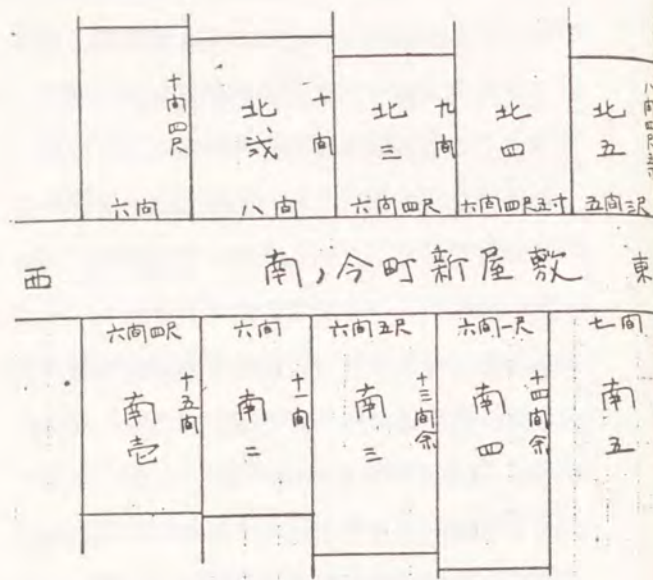 十間四尺
六間
北弐
十間
八間
北三
九間
六間四尺
北四
六間四尺五寸
北五
五間三尺
西
南ノ今町新屋敷
東
六間四尺
南壱
十五間
六間
南二
十一間
六間五尺
南三
十三間余
六間一尺
南四
十四間余
七間
南五